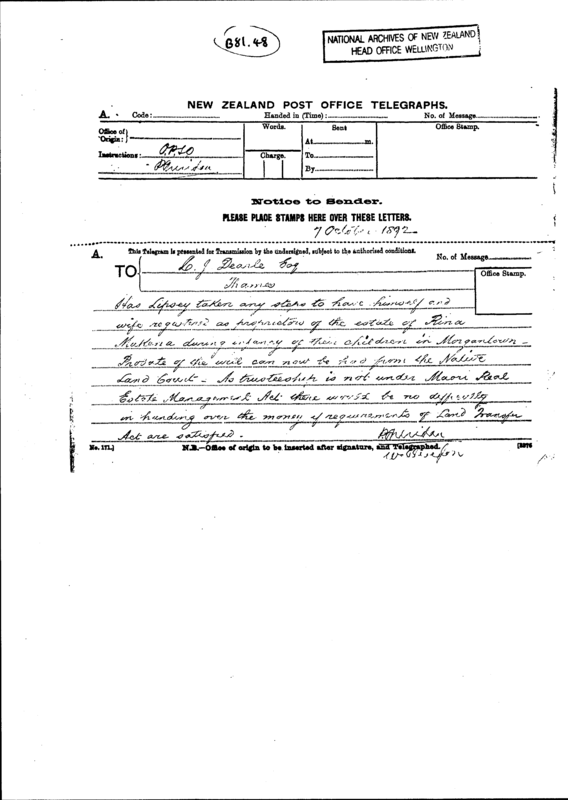 B81.48
NATIONAL ARCHIVES OF NEW ZEALAND
HEAD OFFICE WELLINGTON
NEW ZEALAND POST OFFICE TELEGRAPHS.
A. Code: Handed in (Time): No. of Message
Office of Origin: Words. Sent Office Stamp.
At m.
Instructions: OPSO Charge. To
P Sheridan By
Notice to Sender.
PLEASE PLACE STAMPS HERE OVER THESE LETTERS.
7 October 1892
A. This Telegram is presented for Transmission by the undersigned, subject to the authorised conditions. No. of Message
TO J Dearle Esq Office Stamp.
Thames
Has Lipsey taken any steps to have himself and
wife registered as proprietors of the estate of Rina
Mutlena during infancy of their children in Morgantown -
Probate of the will can now be had from the Native
Land Court - As trusteeship is not under Maori Real
Estate Management Act there would be no difficulty
in handing over the money if requirements of Land Transfer
Act are satisfied.
P Sheridan
No. 171.] N.B.—Office of origin to be inserted after signature, and Telegraphed.